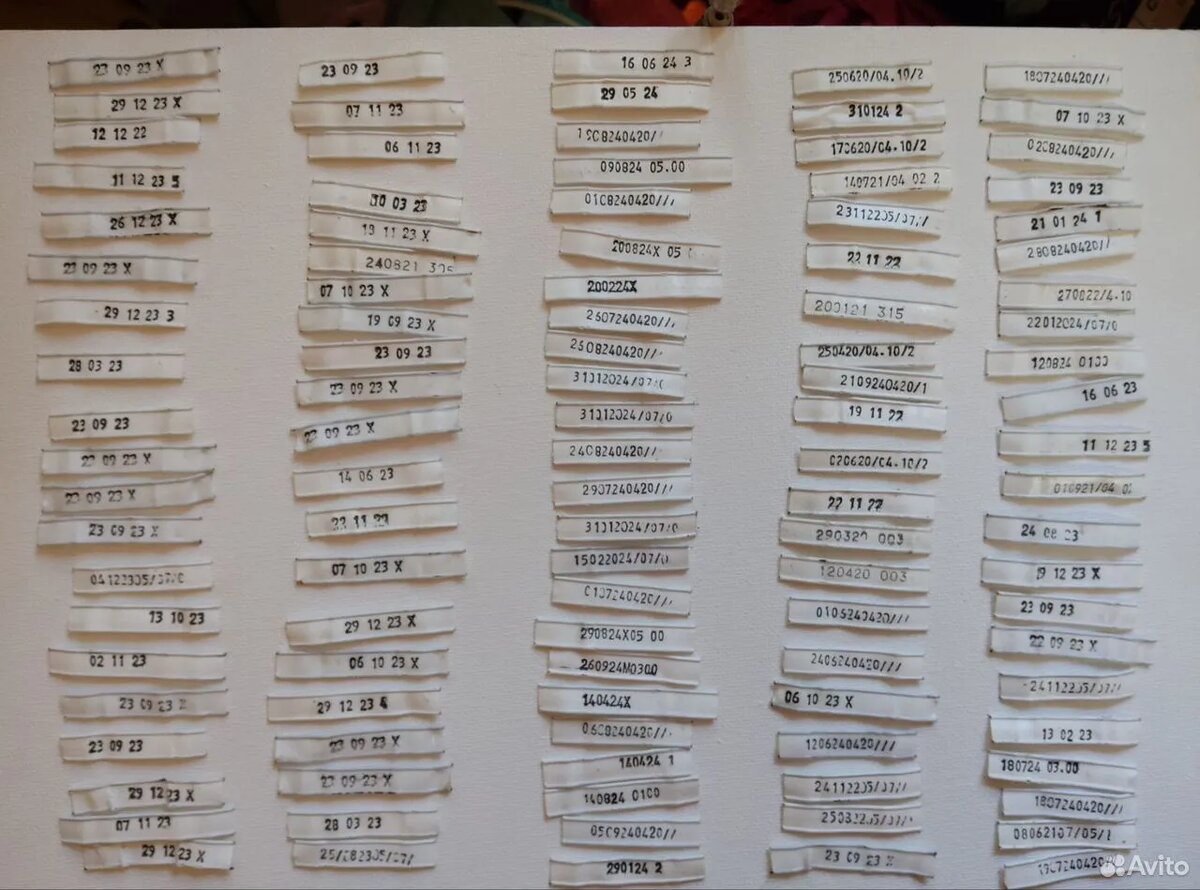 23 09 23 X
29 12 23 X
12 12 22
11 12 23 5
26 12 23 X
23 09 23 X
29 12 23 3
28 03 23
23 09 23
23 09 23 X
23 09 23 X
23 09 23 X
13 10 23
02 11 23
23 09 23
29 12 23 X
07 11 23
29 12 23 X
23 09 23
07 11 23
06 11 23
10 03 23
19 11 23 X
240821
07 10 23 X
19 09 23 X
23 09 23
23 09 23 X
23 09 23 X
14 06 23
07 10 23 X
29 12 23 X
06 10 23 X
29 12 23
23 09 23 X
23 09 23 X
28 03 23
16 06 24 3
29 05 24
090824 05.00
0108240420///
200824X 05
200224X
2607240420//,
31012024/07/0
2408240420//
2907240420///
31012024/07/0
15022024/07/0
290824X05 00
260924M0300
140424X
140424 1
140824 0100
0509240420//
290124 2
250620/04.10/2
310124 2
170620/04.10/2
140721/04 02 2
22 11 22
200121 315
250420/04.10/2
2109240420/1
19 11 22
020620/04.10/2
22 11 22
290320 003
120420 003
2406240420///
06 10 23 X
1206240420///
23 09 23 X
1807240420///
07 10 23 X
0208240420///
23 09 23
21 01 24 1
2808240420//
270822/4.10
22012024/07/0
120824 0100
16 06 23
11 12 23 5
19 12 23 X
23 09 23
22 09 23 X
13 02 23
180724 03.00
1807240420//
Avito